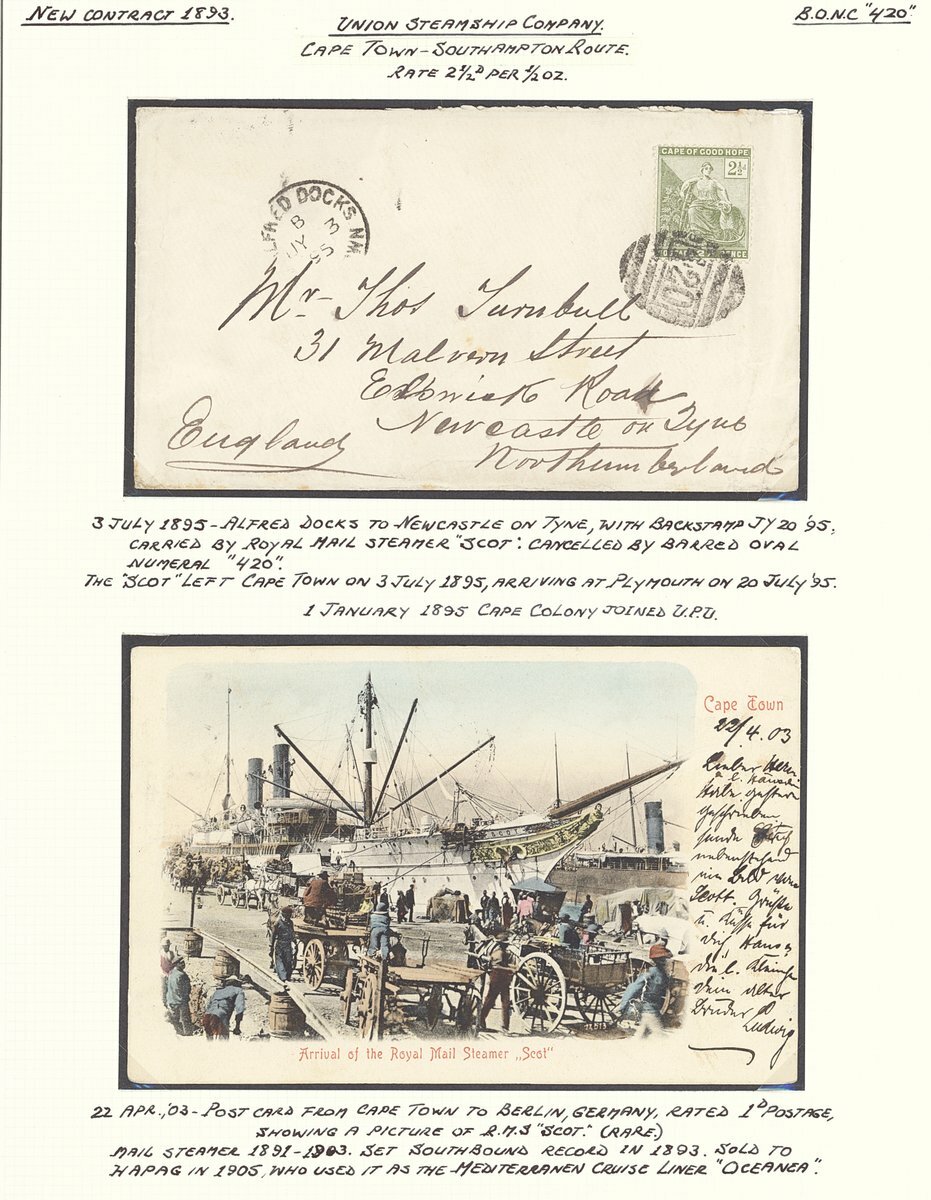 NEW CONTRACT 1893.
B.O.N.C "420".
UNION STEAMSHIP COMPANY.
CAPE TOWN - SOUTHAMPTON ROUTE.
RATE 2½D PER ½ OZ.
CAPE OF GOOD HOPE
2½d
ALFRED DOCKS NM
B
JY 3
95
420
Mr Thos Turnbull
31 Malvern Street
Elswick Road
Newcastle on Tyne
Northumberland
England
3 JULY 1895 - ALFRED DOCKS TO NEWCASTLE ON TYNE, WITH BACKSTAMP JY 20 '95,
CARRIED BY ROYAL MAIL STEAMER "SCOT". CANCELLED BY BARRED OVAL
NUMERAL "420".
THE "SCOT" LEFT CAPE TOWN ON 3 JULY 1895, ARRIVING AT PLYMOUTH ON 20 JULY '95.
1 JANUARY 1895 CAPE COLONY JOINED U.P.U.
Cape Town
22/4.03
Lieber Herm
u. l. Hänschen
Habe gestern
geschrieben
sende Euch
nebenstehend
ein Bild vom
Scott. Grüße
u. Küsse für
Dich, Hans u
die l. Kleinge
Dein alter
Bruder
Ludwig
SCOT
12513
Arrival of the Royal Mail Steamer „Scot"
22 APR., '03 - POST CARD FROM CAPE TOWN TO BERLIN, GERMANY, RATED 1D POSTAGE,
SHOWING A PICTURE OF R.M.S "SCOT." (RARE.)
MAIL STEAMER 1891-1903. SET SOUTHBOUND RECORD IN 1893. SOLD TO
HAPAG IN 1905, WHO USED IT AS THE MEDITERRANEN CRUISE LINER "OCEANEA".